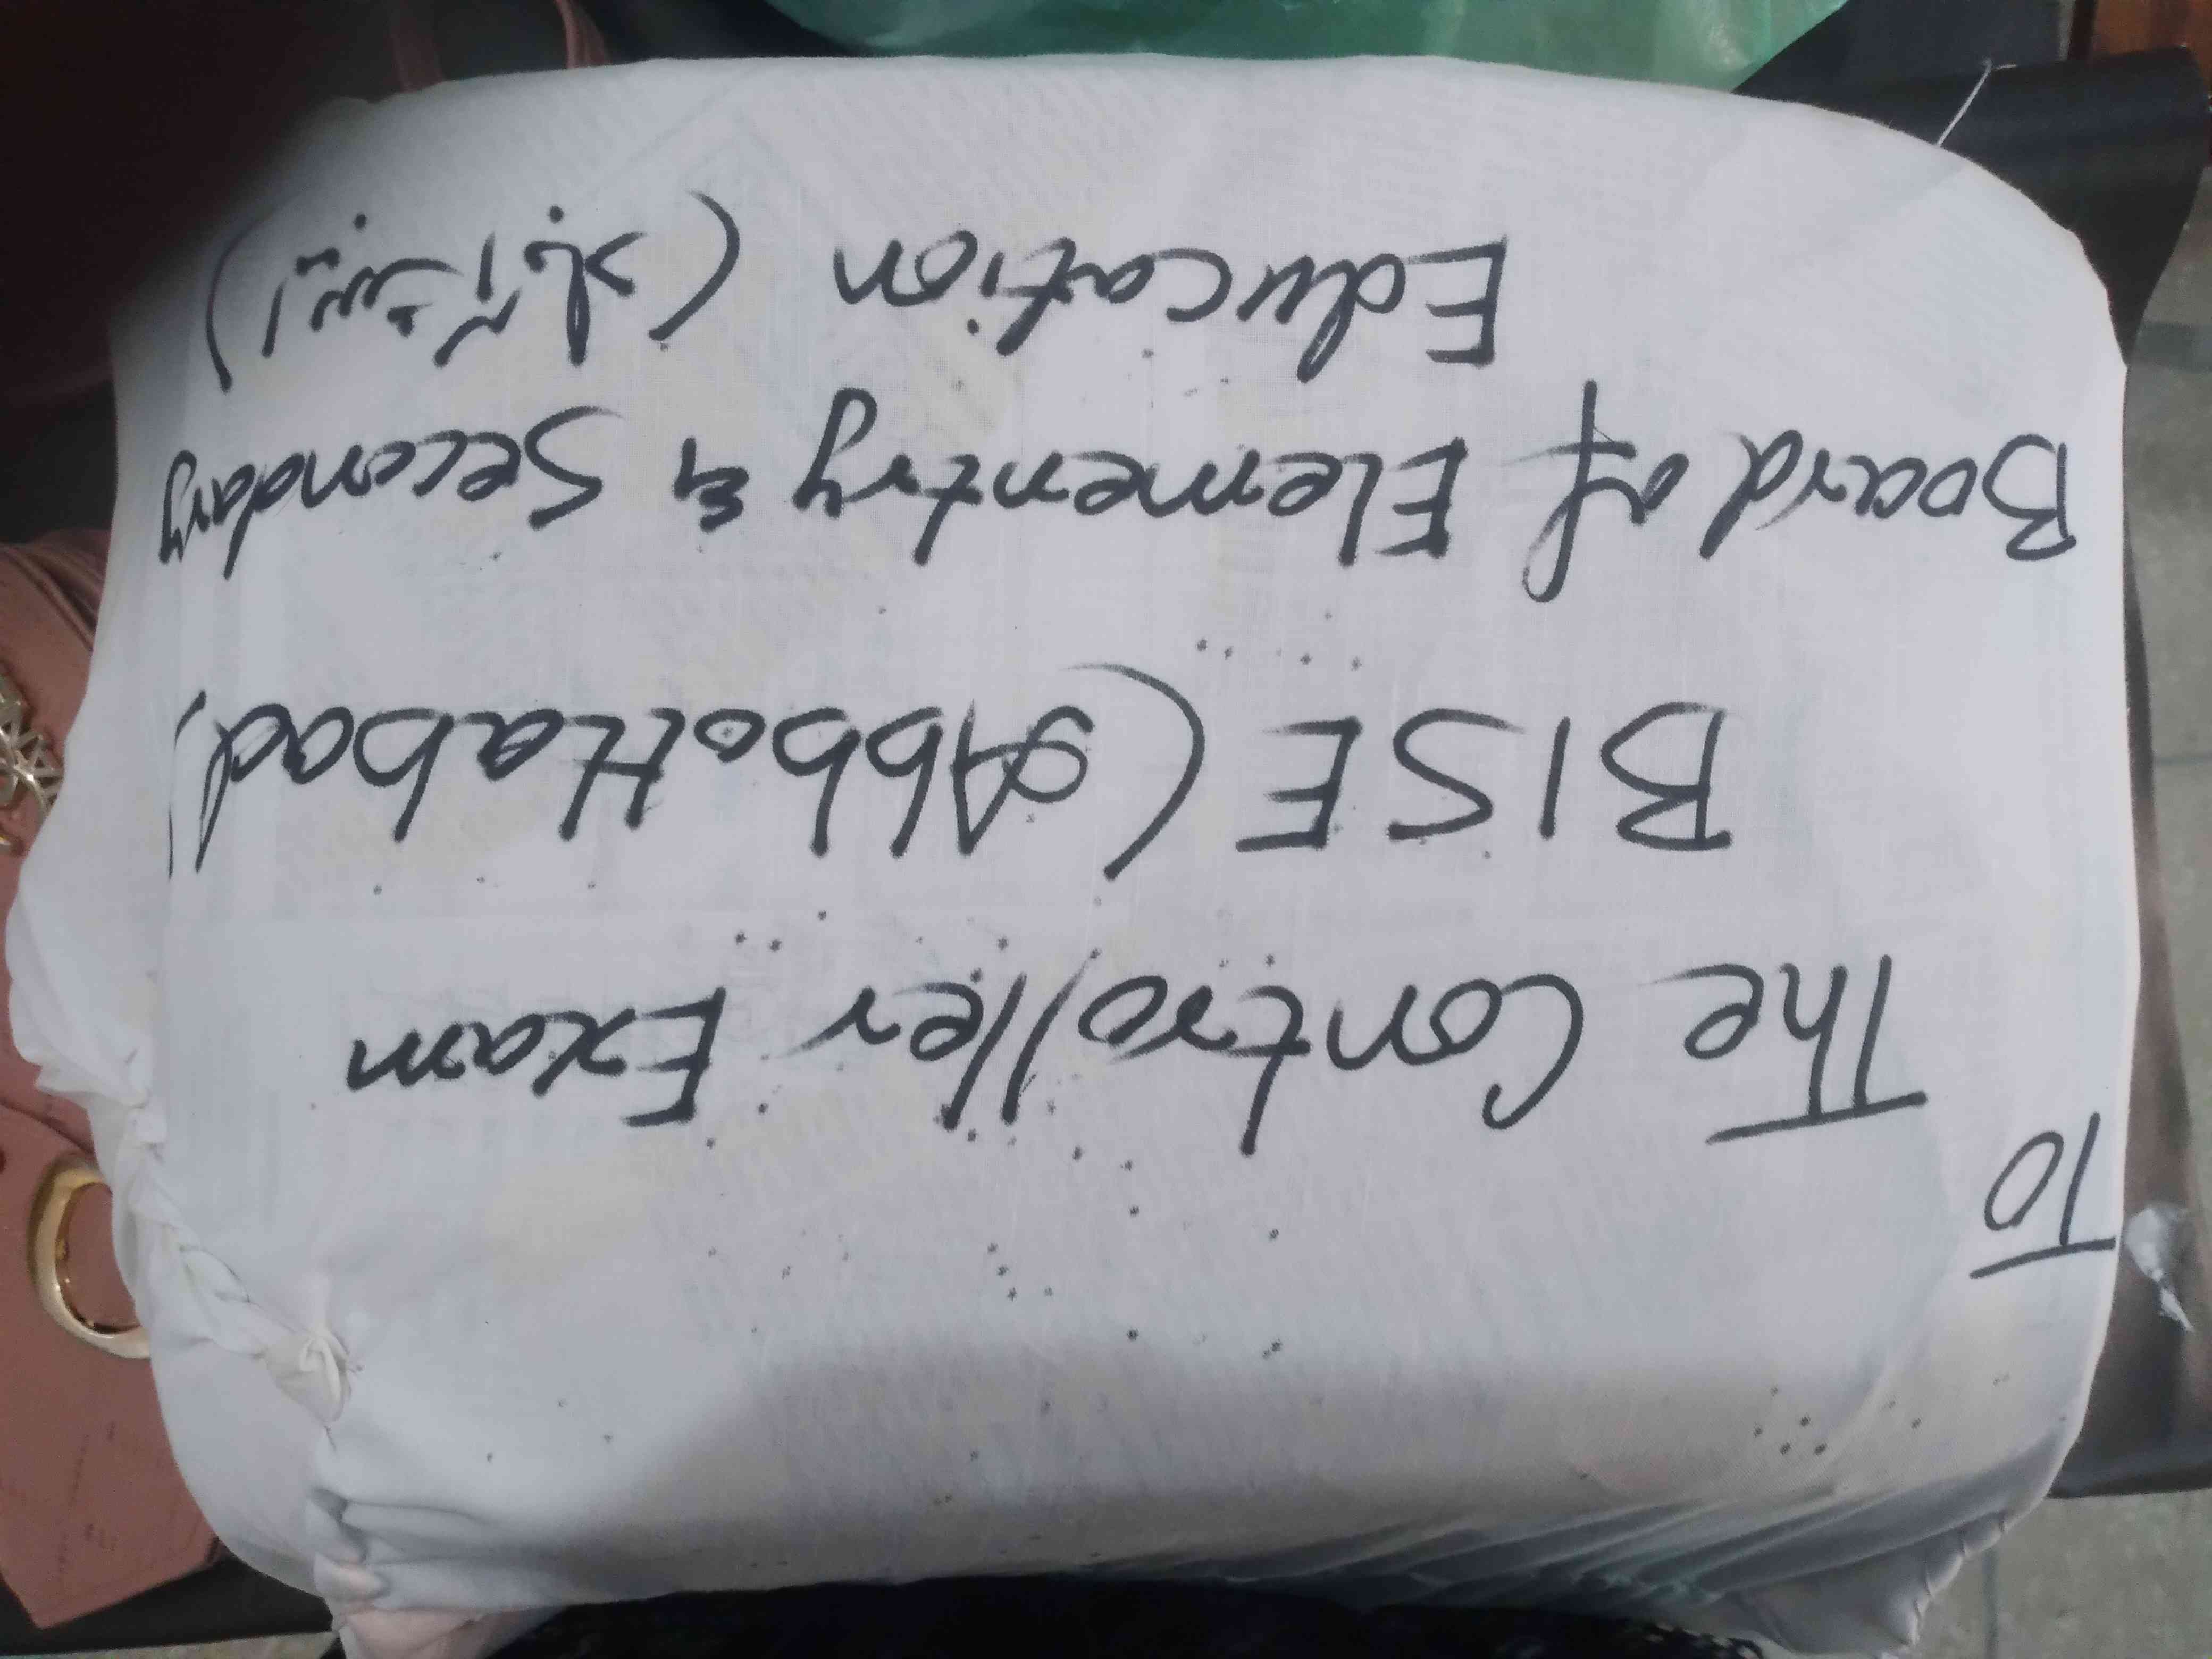 To
The Controller Exam
BISE (Abbottabad)
Board of Elementry & Secondary
Education (ایبٹ آباد)